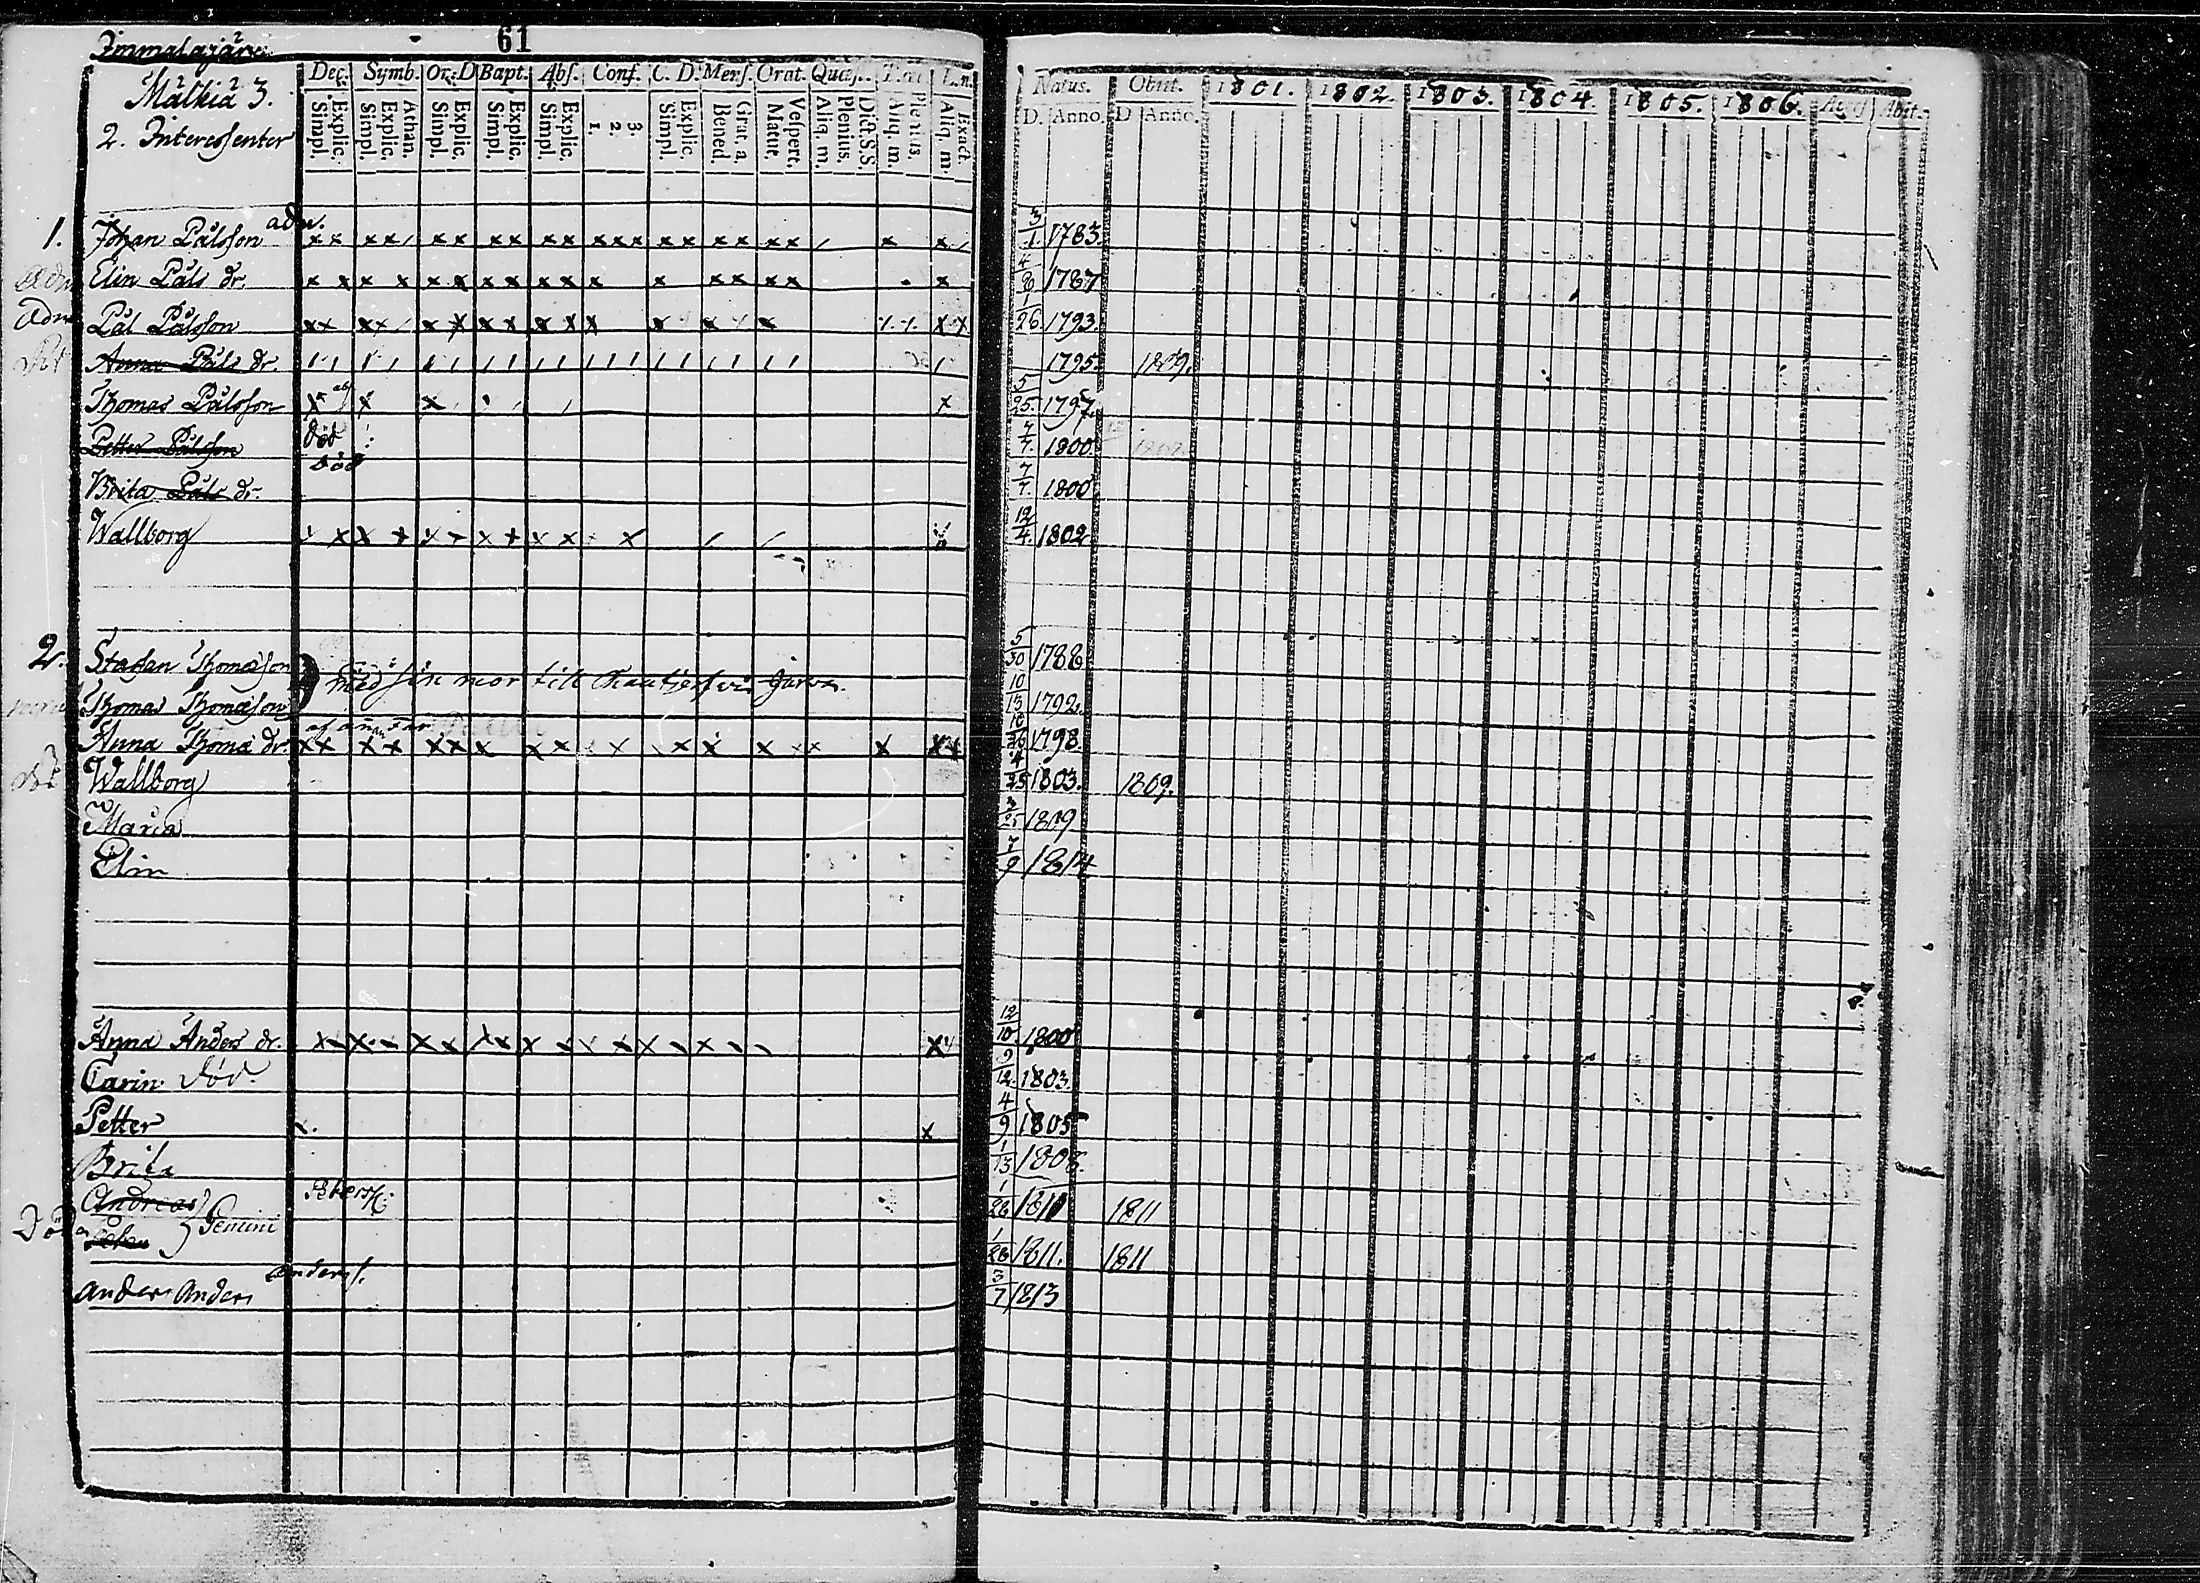 Immalajärvi
61
Målkiä 3.
2. Interessenter
Dec. Symb. Or. D Bapt. Abs. Conf. C. D. Mens. Orat. Quæs. L.n.
Explic. Simpl. Athan. Explic. Simpl. Explic. Simpl. Explic. Simpl. Explic. Simpl. 3. 2. 1. Explic. Simpl. Grat. a. Bened. Vespert. Matut. Dict. S.S. Plenius. Aliq. m. Plenius. Aliq. m. Exact. Aliq. m.
Natus. Obiit. 1801. 1802. 1803. 1804. 1805. 1806. Abit.
D. Anno. D Anno.
adm.
1. Johan Pålsson 3/1. 1783.
Adm Elin Påls dr. 4/8 1787
Adm Pål Pålsson 1/26 1793.
Anna Påls dr. 1795. 1809.
Thomas Pålsson 5/25. 1797
Petter Pålsson död 7/7. 1800.
död
Brita Påls dr. 7/7. 1800
Wallborg 12/4. 1802
2. Stafan Thomasson 5/30 1788
med sin mor till
Thomas Thomasson 10/13 1792.
Anna Thomæ dr. 1798.
Wallborg 4/25 1803. 1809.
Maria 3/25 1809
Elin 7/9 1814
Anna Anders dr. 12/10. 1800
Carin. död. 9/12. 1803.
Petter 4/9 1805
Brita 1/13 1808.
Andreas 1/26 1811 1811
Gemini
1/26 1811. 1811
Anders.
Anders Anders 3/7 1813